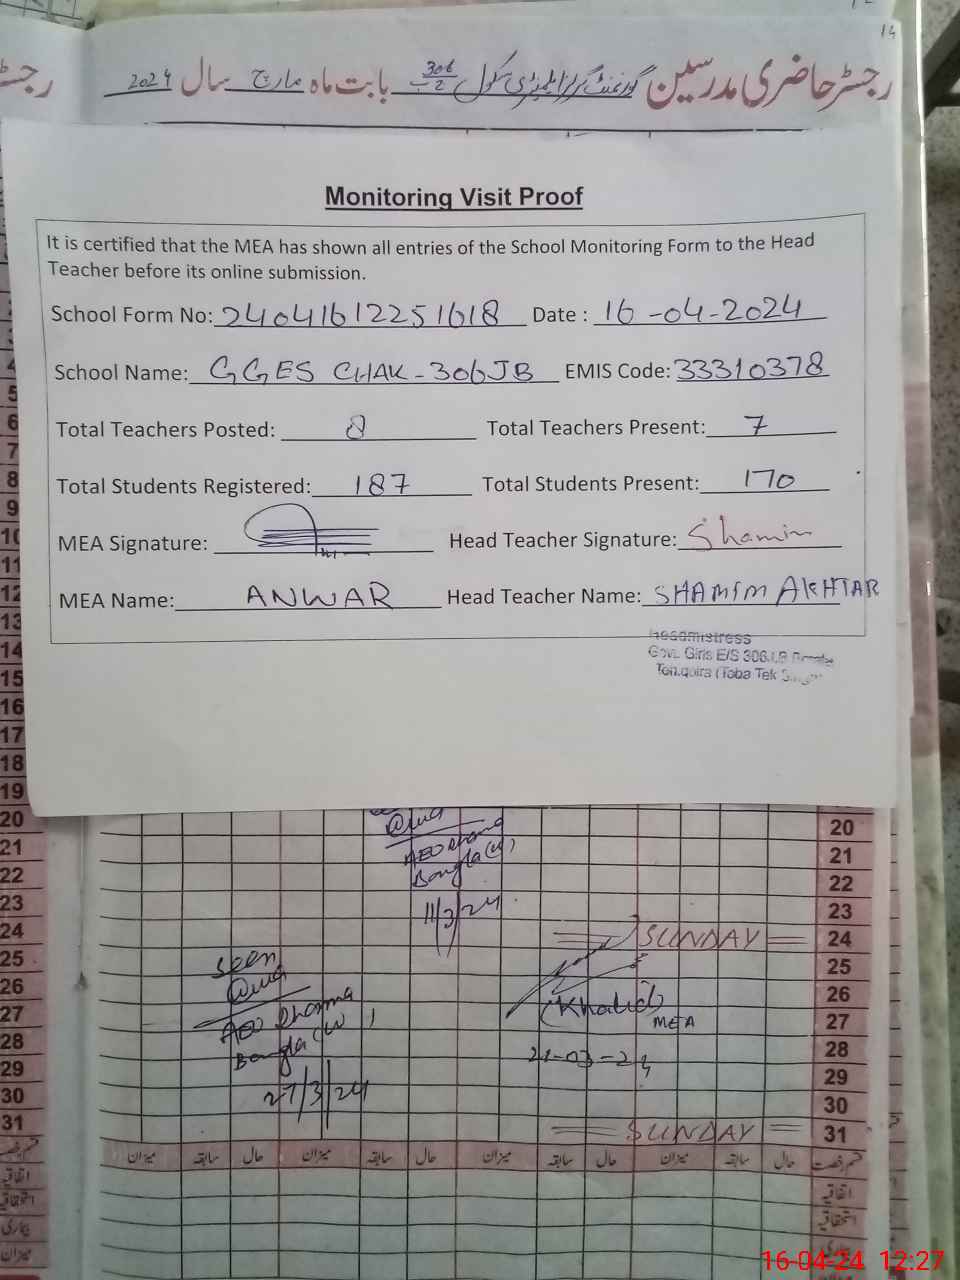 14
رجسٹر حاضری مدرسین گورنمنٹ گرلز ایلیمنٹری سکول 306 ج ب بابت ماہ مارچ سال 2024
Monitoring Visit Proof
It is certified that the MEA has shown all entries of the School Monitoring Form to the Head
Teacher before its online submission.
School Form No: 24041612251618 Date : 16-04-2024
School Name: GGES CHAK-306JB EMIS Code: 33310378
Total Teachers Posted: 8 Total Teachers Present: 7
Total Students Registered: 187 Total Students Present: 170
MEA Signature: Head Teacher Signature: Shamim
MEA Name: ANWAR Head Teacher Name: SHAMIM AKHTAR
Headmistress
Govt. Girls E/S 306
(Toba Tek
4
5
6
7
8
9
10
11
12
13
14
15
16
17
18
19
20 20
21 AEO 21
22 Bangla (W) 22
23 11/3/24 23
24 SUNDAY 24
25 Seen 25
26 (Khalid) 26
27 AEO MEA 27
28 Bangla (W) 21-03-24 28
29 27/3/24 29
30 30
31 SUNDAY 31
میزان سابقہ حال میزان سابقہ حال میزان سابقہ حال میزان سابقہ حال قسم رخصت
اتفاقیہ اتفاقیہ
استحقاقیہ استحقاقیہ
بیماری بیماری
میزان
16-04-24 12:27